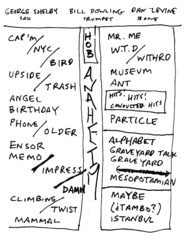 GEORGE SHELBY
SAX
BILL DOWLING
TRUMPET
DAN LEVINE
BONE
CAP'M/
NYC/
BIRD
UPSIDE/
TRASH
ANGEL
BIRTHDAY
PHONE/
OLDER
ENSOR
MEMO
IMPRESS
DAMN
CLIMBING/
TWIST
MAMMAL
HOB
ANAHEIM
MR. ME
W.T.D/
WITHRD
MUSEUM
ANT
HITS! HITS!
CONDUCTED HITS
PARTICLE
ALPHABET
GRAVEYARD TALK
GRAVEYARD
MESOPOTAMIAN
MAYBE
(¿TAMBO?)
ISTANBUL